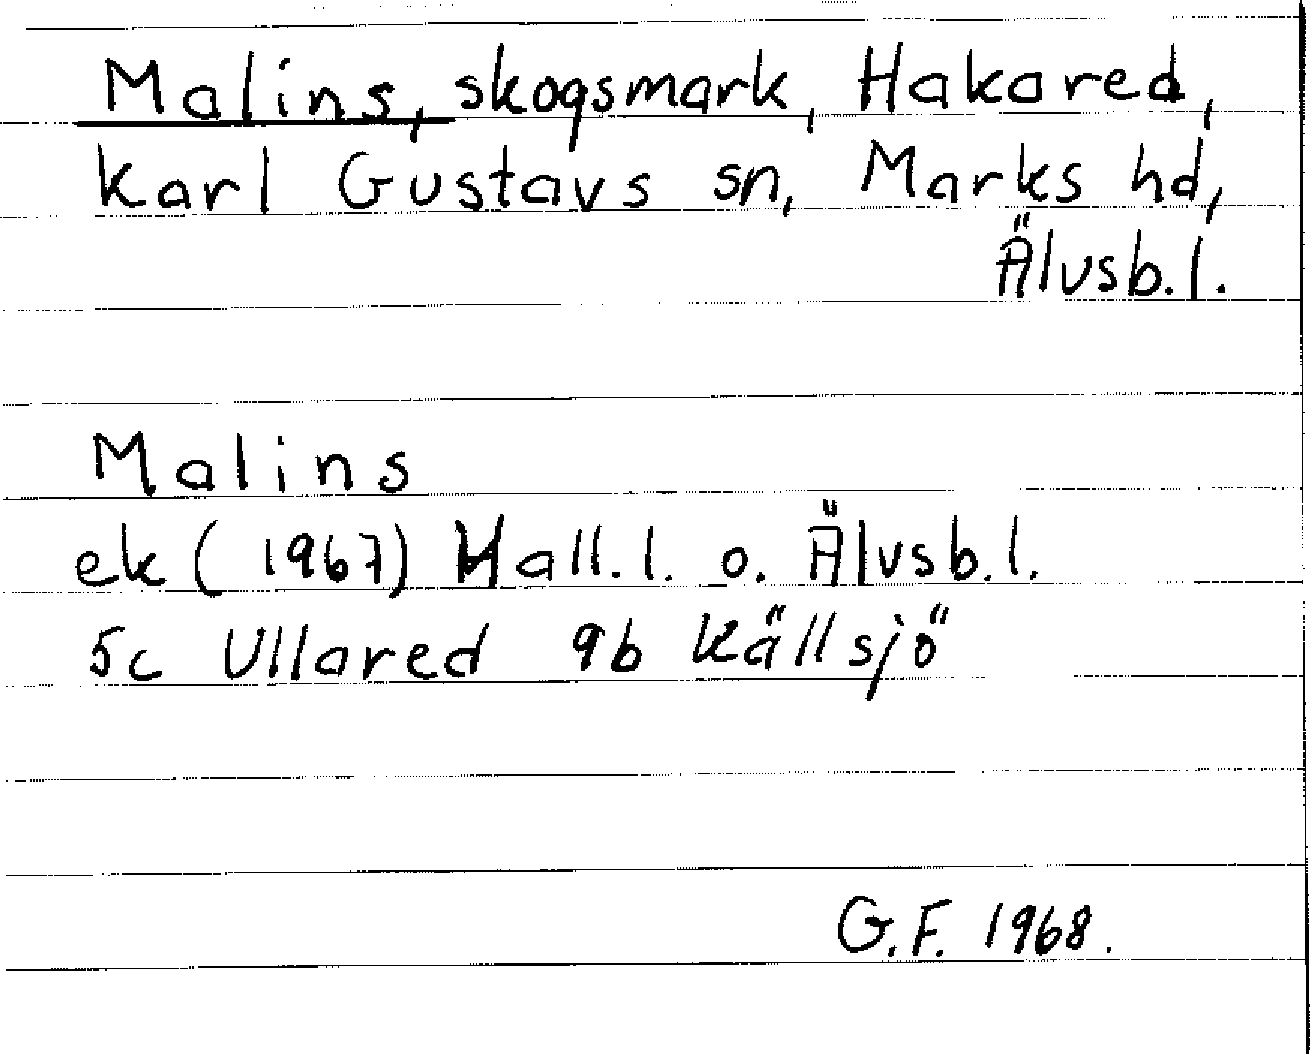 Malins, skogsmark, Hakared,
Karl Gustavs sn, Marks hd,
Älvsb.l.
Malins
ek (1967) Hall.l. o. Älvsb.l.
5c Ullared 9b Källsjö
G.F. 1968.